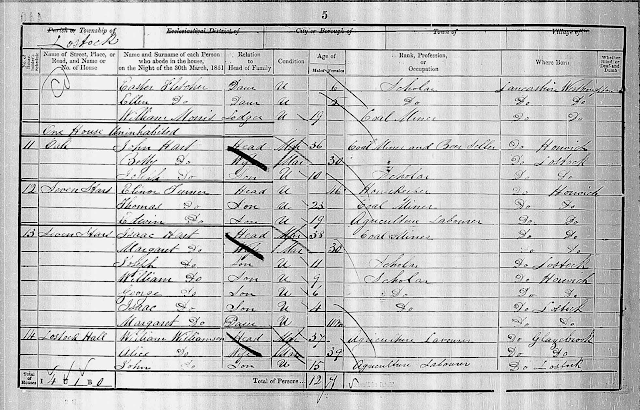 5
Parish or Township of Ecclesiastical District of City or Borough of Town of Village of
Lostock
Name of Street, Place, or Road, and Name or No. of House Name and Surname of each Person who abode in the house, on the Night of the 30th March, 1851 Relation to Head of Family Condition Age of Males Females Rank, Profession, or Occupation Where Born Whether Blind, or Deaf and Dumb
Esther Fletcher Daur U 6 Scholar Lancashire
Ellen Do Daur U 2 Do Do Do
William Morris Lodger U 19 Coal Miner Do Do
One House Uninhabited
11 John Hart Head Mar 36 Coal Miner and Beer Seller Do Horwich
Betty Do Wife Mar 30 Do Lostock
Son U 10 Scholar Do Do
12 Seven Stars Elinor Turner Head 46 Do Horwich
Thomas Do Son U 23 Coal Miner Do Do
Edwin Do Son U 19 Agriculture Labourer Do Do
13 Seven Stars Isaac Hart Head Mar 38 Coal Miner Do Do
Margaret Do Wife Mar 30 Do
Joseph Do Son U 11 Scholar Do Lostock
William Do Son U 9 Scholar Do Horwich
George Do Son U 6 Do Do Do
Isaac Do Son U 4 Do Lostock
Margaret Do Daur U Do Do
14 Lostock Hall William Williamson Head Mar 37 Agriculture Labourer Do Glazebrook
Alice Do Wife Mar 39 Do Do
John Do Son U 15 Agriculture Labourer Do Lostock
Total of Houses Total of Persons 12 7